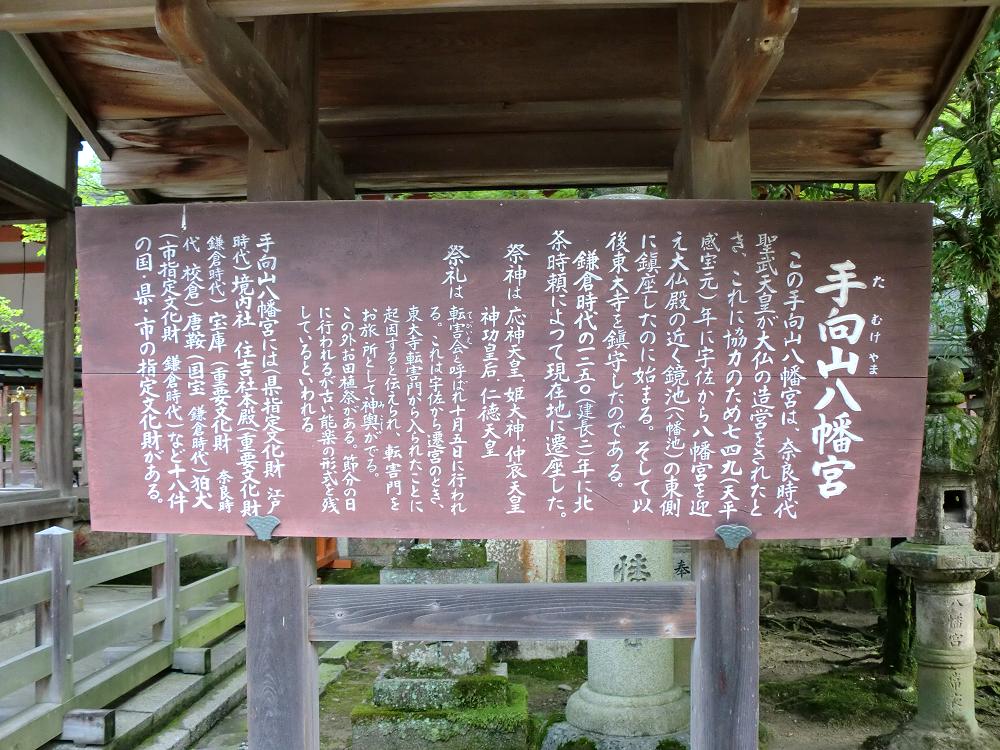 手向山八幡宮
た むけ やま
この手向山八幡宮は、奈良時代
聖武天皇が大仏の造営をされたと
き、これに協力のため七四九(天平
感宝元)年に宇佐から八幡宮を迎
え大仏殿の近く鏡池(八幡池)の東側
に鎮座したのに始まる。そして以
後東大寺を鎮守したのである。
鎌倉時代の一二五〇(建長二)年に北
条時頼によって現在地に遷座した。
祭神は 応神天皇、姫大神、仲哀天皇
神功皇后、仁徳天皇
祭礼は 転害会と呼ばれ十月五日に行われ
てがいえ
る。これは宇佐から遷宮のとき、
東大寺転害門から入られたことに
起因すると伝えられ、転害門を
お旅所として神輿がでる。
みこし
この外お田植祭がある。節分の日
に行われるが古い能楽の形式を残
しているといわれる
手向山八幡宮には(県指定文化財 江戸
時代)境内社 住吉社本殿(重要文化財
鎌倉時代)宝庫(重要文化財 奈良時
代 校倉)唐鞍(国宝 鎌倉時代)狛犬
(市指定文化財 鎌倉時代)など十八件
の国・県・市の指定文化財がある。
奉
八幡宮